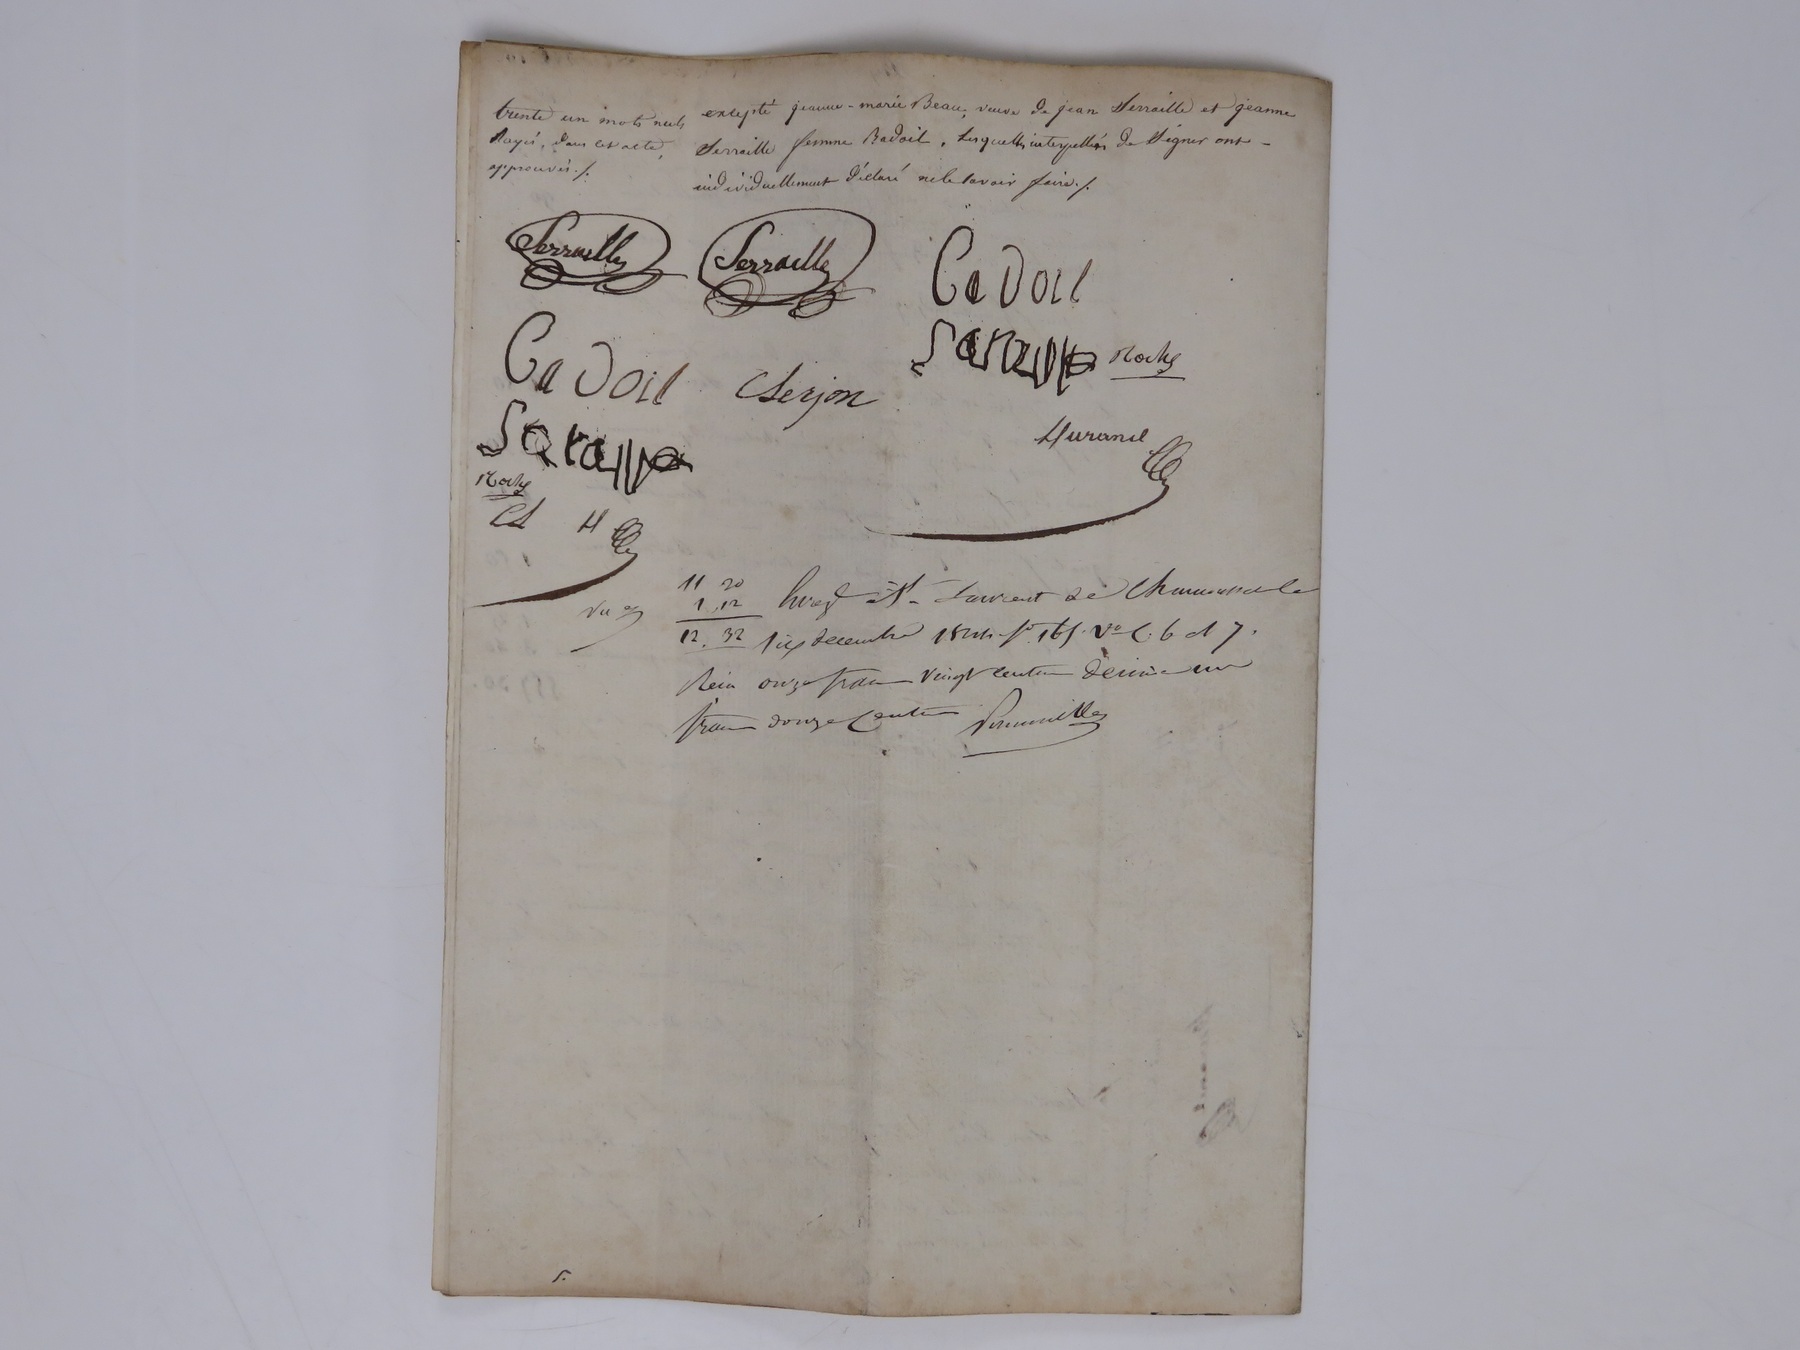 trente un mots nuls
Rayés, dans cet acte,
approuvés./.
excepté jeanne-marie Beau, veuve de jean Serraille et jeanne
Serraille femme Badoil, Lesquelles interpellées de Signer ont -
individuellement déclaré ne le savoir faire./.
Serraille Serraille Cadoil
Saraille
Cadoil Serjon
Saraille
CS H
Durand
11 20
1,12
12,32
St Laurent de Chamousset le
Six décembre
f° 165 V° C. 6 et 7.
Reçu onze francs vingt centimes décime un
franc douze centimes
5.